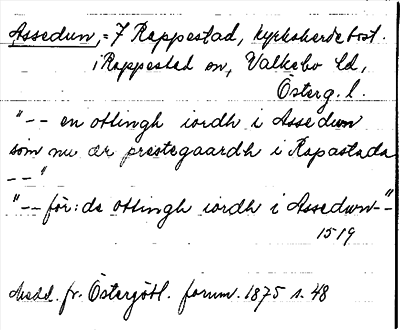 Assedun, = 7 Rappestad, kyrkoherdebost.
i Rappestad sn, Valkebo hd,
Österg. l.
"-- en ottingh iordh i Assedun
som nu ær prestegaardh i Rapastada
--"
"-- för: de ottingh iordh i Assedun--"
1519
Medd. fr. Östergötl. fornm. 1875 s. 48